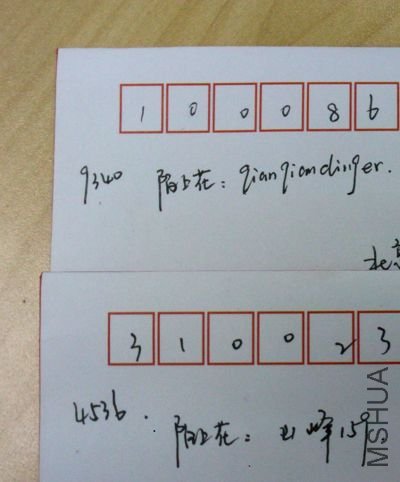 100086
9340 陌上花：qianqiandinger.
北京
310023
4536. 陌上花：山峰159
MSHUA